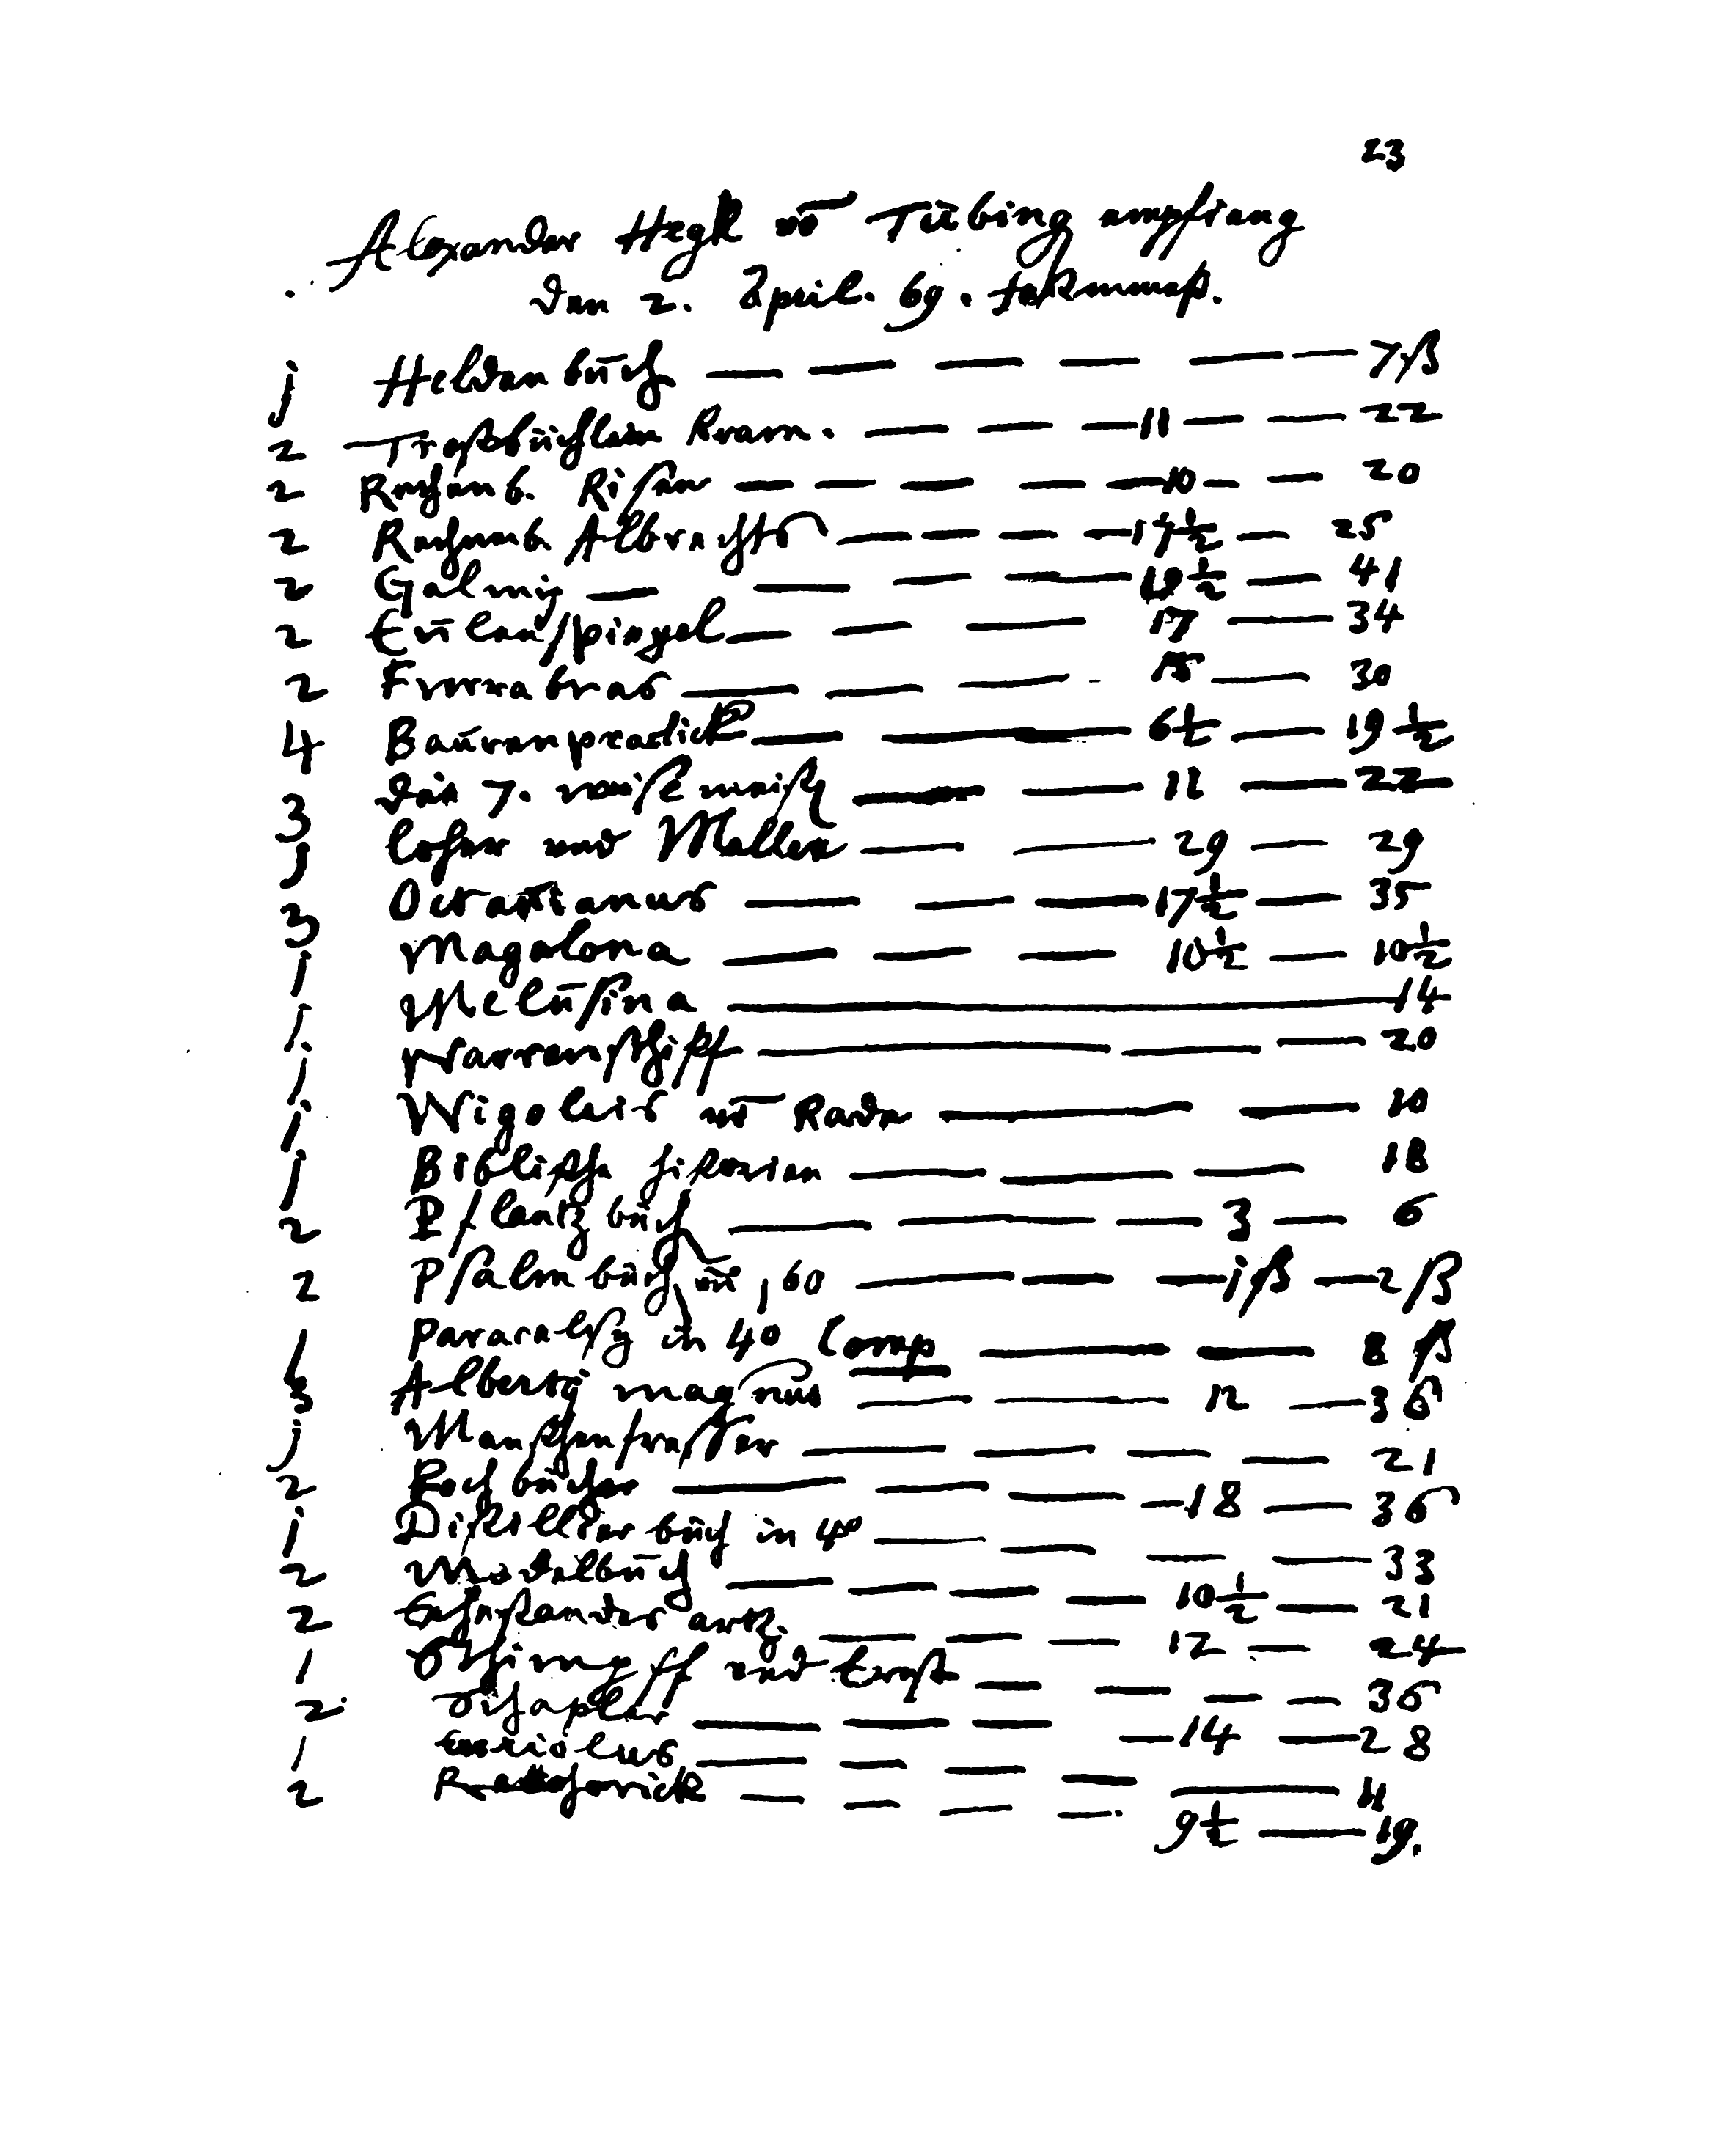 23
Alexander Hegk vō Tübing empfieng
den 2. April. 69. fastenmess.
j Heldenbůch 7 ß
2 Trostbüchlein Kram. 11 22
2 Rechenb. Risen 10 20
2 Rechenb. Albrechts 17½ 25
2 Galmy 19½ 41
2 Eůlenspiegel 17 34
2 Fierrabras 15 30
4 Baůrenpractick 6½ 19½
3 die 7. weise meist 11 22
j Loher und Maller 29 29
3 Octavianus 17½ 35
j Magelona 10½ 10½
j Melůsina 14
j Narrenschiff 20
j Wigoleis vō Rade 10
j Biblische historien 18
2 Pflantzbůch 3 6
2 Psalmbůch 60 1 ß 2 ß
1 Paracelsy in 4o Comp 8 ß
3 Alberty magnus 12 36
j Menschenfresser 21
2 Kochbůcher 18 36
j Distillierbůch in 4o 33
2 Modelbůch 10½ 21
2 Ehestandes artz. 12 24
1 Schimpff und Ernst 36
2 Hschapler 14 28
1 Euriolus 11
2 Rethorick 9½ 19.